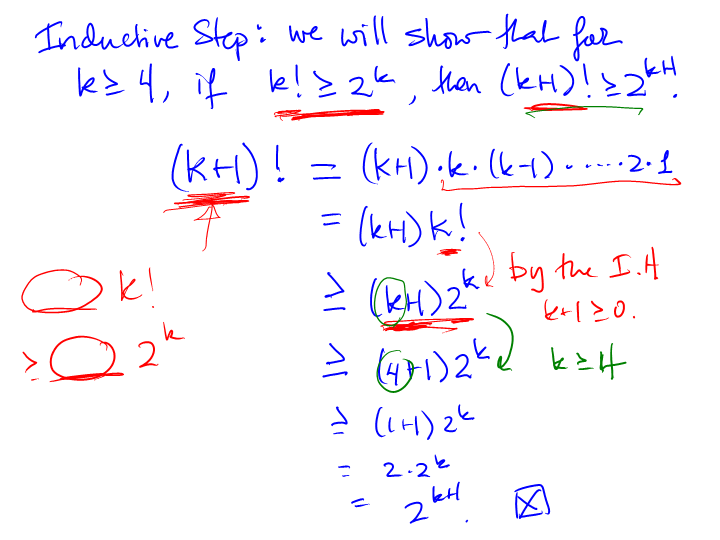 Inductive Step: we will show that for
k ≥ 4, if k! ≥ 2^k, then (k+1)! ≥ 2^{k+1}.
(k+1)! = (k+1)·k·(k-1)·····2·1
= (k+1)k!
≥ (k+1)2^k by the I.H
k+1 ≥ 0.
◯ k!
≥ ◯ 2^k
≥ (4+1)2^k k ≥ 4
≥ (1+1)2^k
= 2·2^k
= 2^{k+1}. ☒